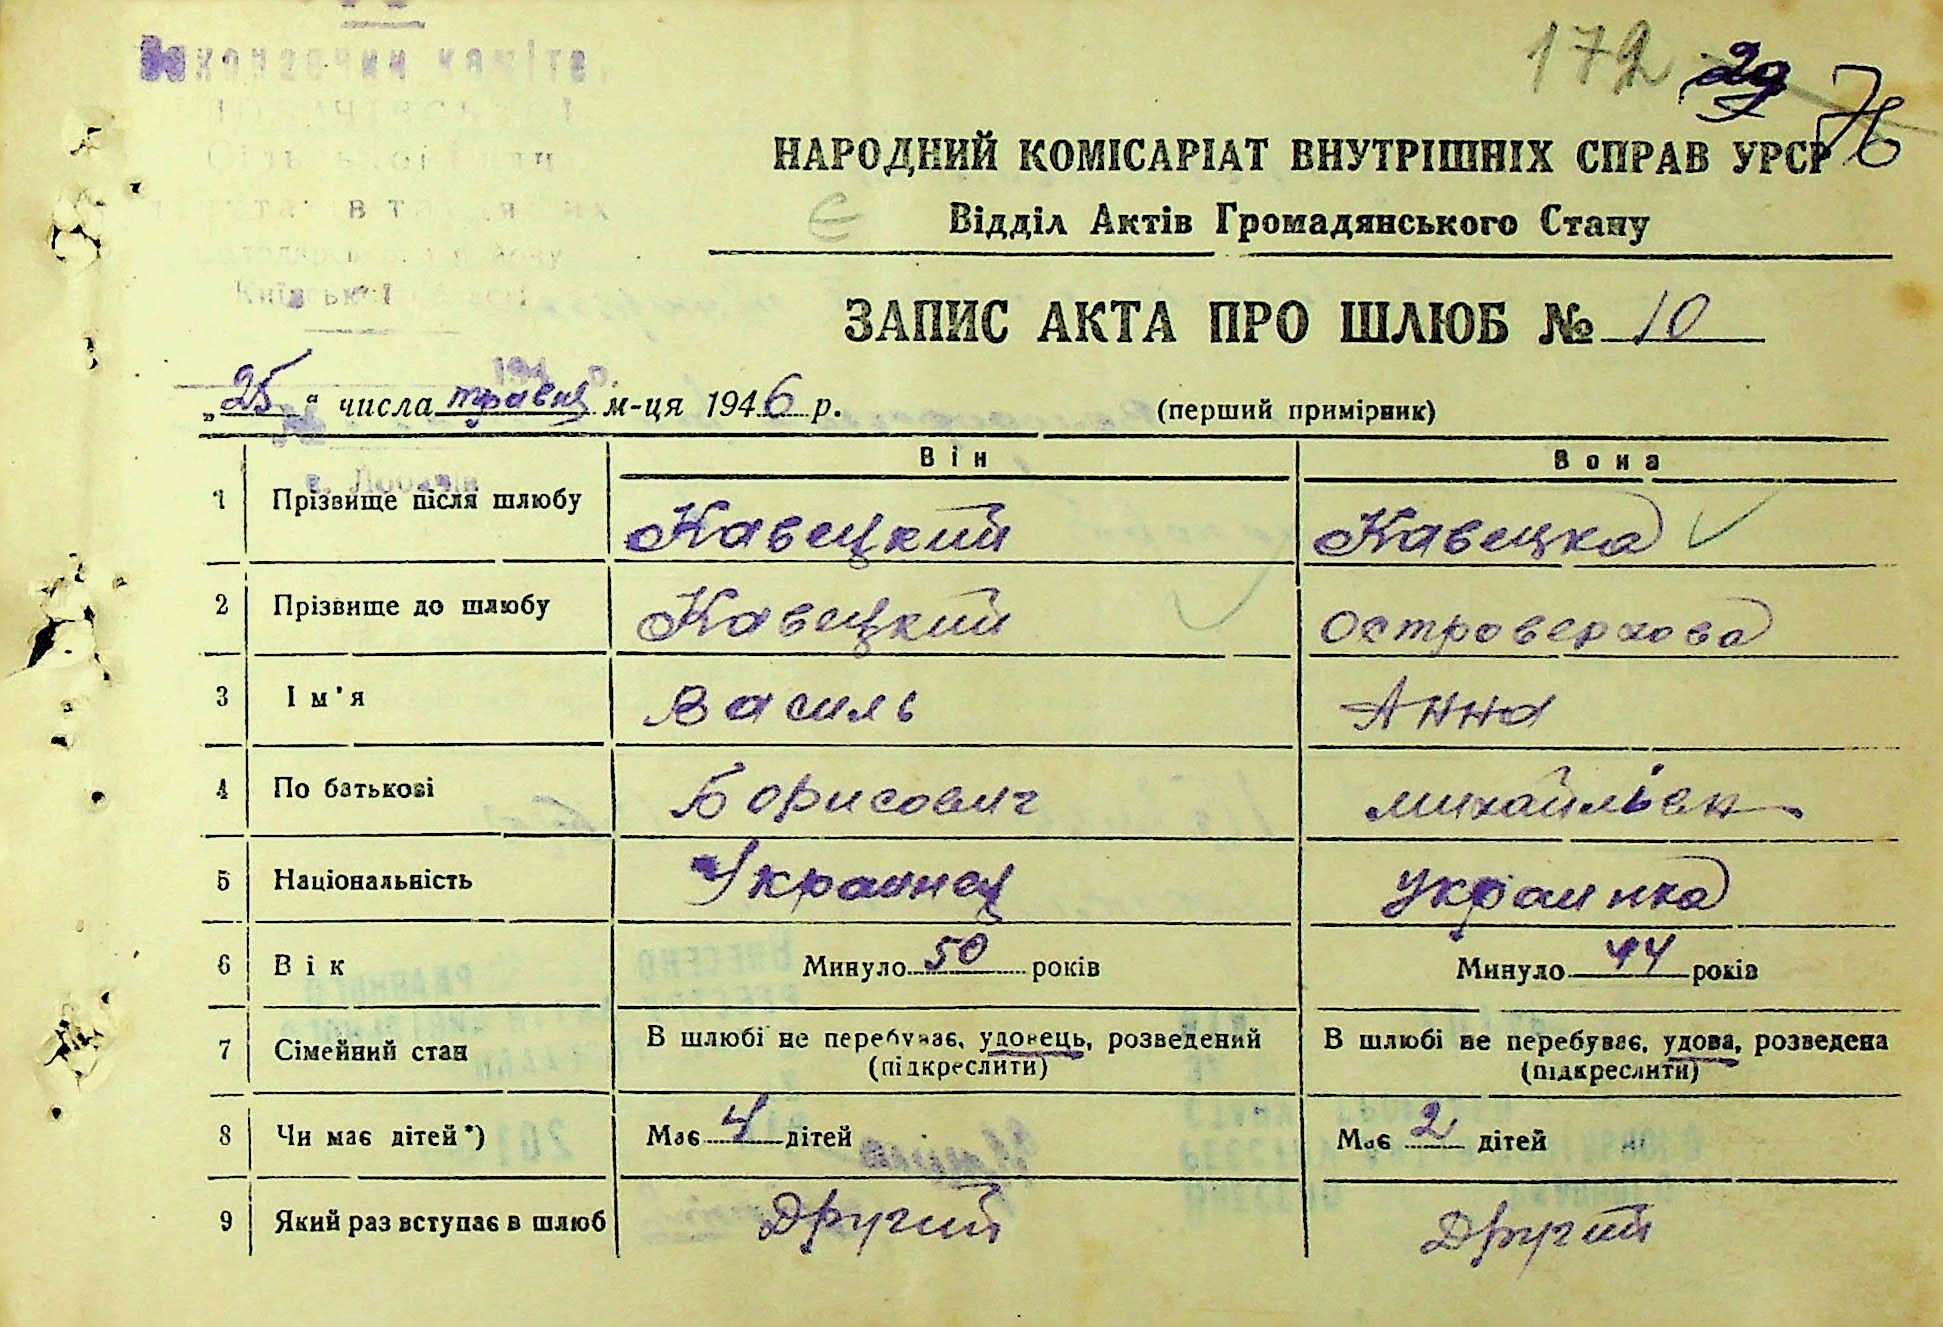 Виконавчий коміте
Київської області
172 29 76
НАРОДНИЙ КОМІСАРІАТ ВНУТРІШНІХ СПРАВ УРСР
Відділ Актів Громадянського Стану
ЗАПИС АКТА ПРО ШЛЮБ № 10
„25“ числа травня м-ця 1946 р. (перший примірник)
Він Вона
1 Прізвище після шлюбу Кавецкий Кавецка
2 Прізвище до шлюбу Кавецкий Островерхова
3 Ім'я Василь Анна
4 По батькові Борисович Михайлівн
5 Національність Украинец Украинка
6 Вік Минуло 50 років Минуло 44 років
7 Сімейний стан В шлюбі не перебуває, удовець, розведений (підкреслити) В шлюбі не перебуває, удова, розведена (підкреслити)
8 Чи має дітей*) Має 4 дітей Має 2 дітей
9 Який раз вступає в шлюб Другий Другий